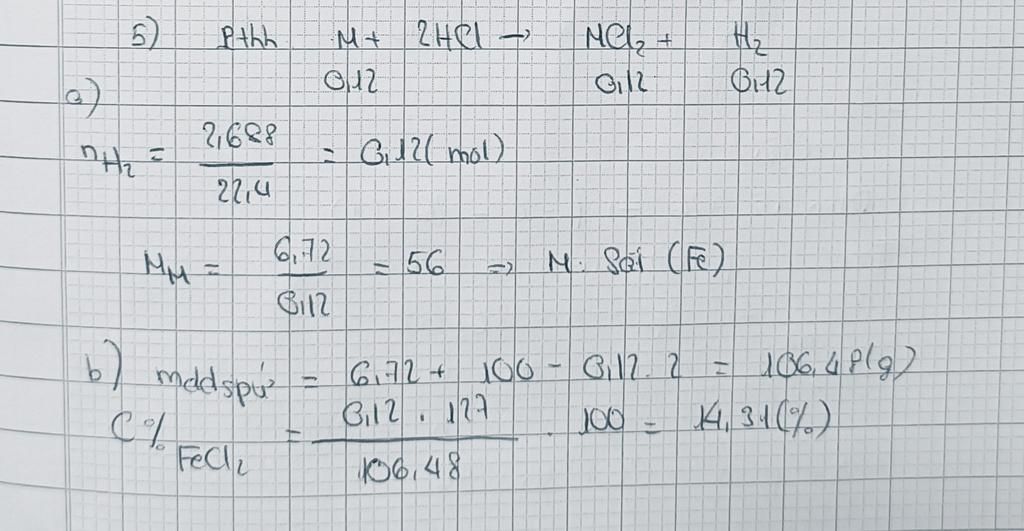 5) Pthh M + 2HCl → MCl₂ + H₂
0,12 0,12 0,12
a)
nH₂ = 2,688 / 22,4 = 0,12 (mol)
M_M = 6,72 / 0,12 = 56 => M: Sắt (Fe)
b) mddspứ = 6,72 + 100 - 0,12 . 2 = 106,48 (g)
C% FeCl₂ = 0,12 . 127 / 106,48 . 100 = 14,31 (%)